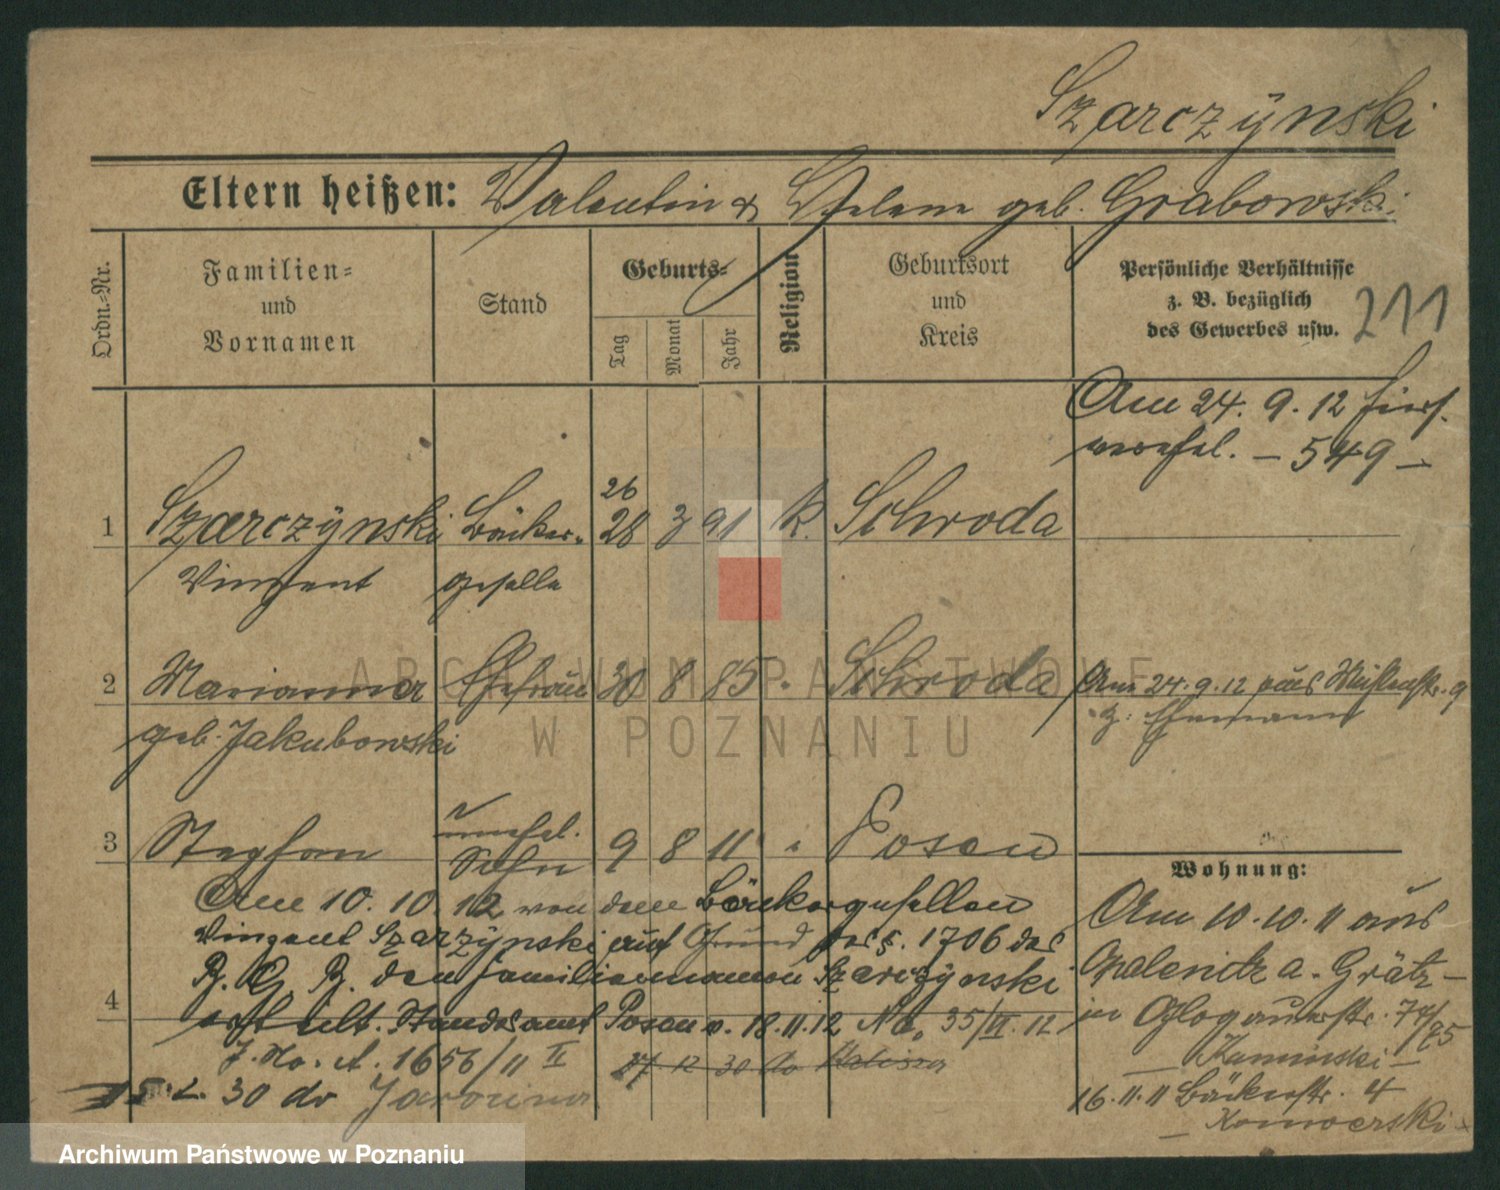 Szarczÿnski
Eltern heißen: Valentin & Helene geb. Grabowski
Ordn.=Nr.
Familien=
und
Vornamen
Stand
Geburts=
Tag
Monat
Jahr
Religion
Geburtsort
und
Kreis
Persönliche Verhältnisse
z. B. bezüglich
des Gewerbes usw.
211
Am 24. 9. 12 hier
verehel. – 549 –
26
1 Szarczÿnski Bäcker- 28 3 91 k. Schroda
Vinzent geselle
2 Marianna Ehefrau 30 8 85 " Schroda Am 24. 9. 12 aus 9
geb. Jakubowski z. Ehemann
unehel.
3 Stephan Sohn 9 8 11 " Posen
Wohnung:
Am 10. 10. 12 von dem Bäckergesellen
Vinzent Szarzÿnski auf Grund des §. 1706 des
B. G. B. den Familiennamen Szarczÿnski
4 erteilt. Standesamt Posen v. 18. 11. 12 No. 35/VI. 12
J. No. A. 1656/11 II
27 12 30 do
30 do Jarocina
Am 10. 10. 11 aus
Opalenitza. Grätz –
in Glogauerstr. 74/75
– Kaminski –
16. 11. 11 Bäckerstr. 4
– Komoerski –
ARCHIWUM PAŃSTWOWE
W POZNANIU
Archiwum Państwowe w Poznaniu